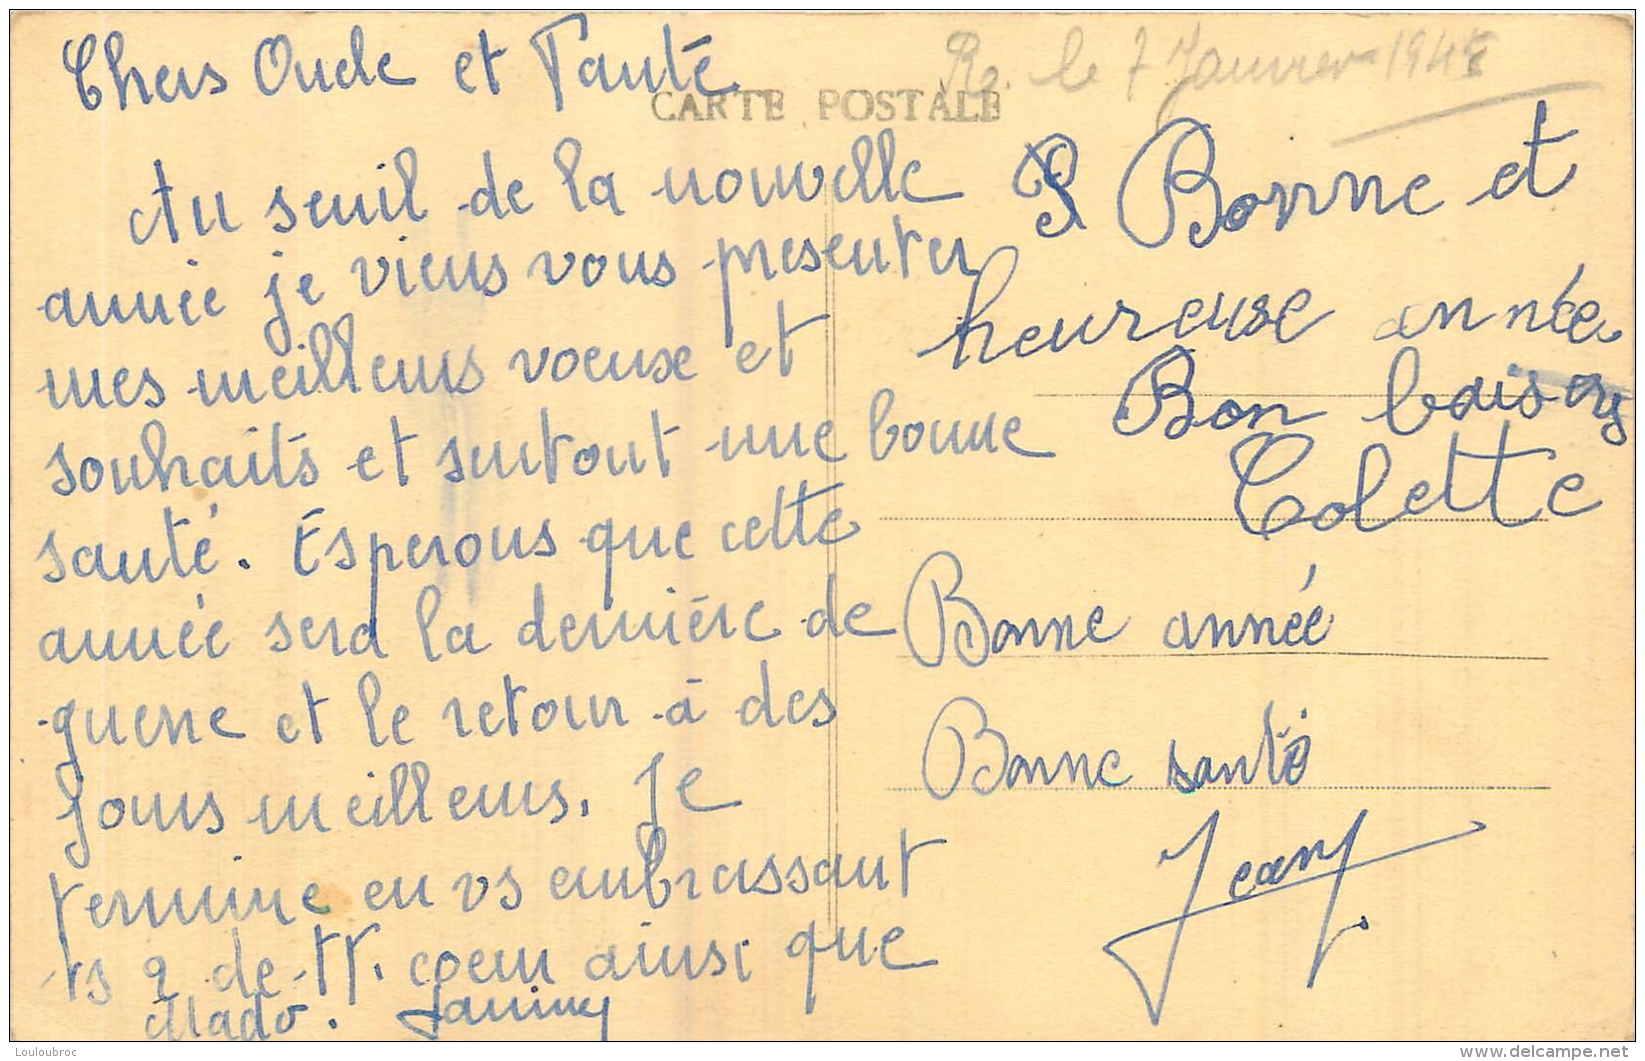 Chers Oncle et Tante
CARTE POSTALE
Re. le 7 Janvier 194
Au seuil de la nouvelle
année je viens vous presenter
mes meilleurs voeuxe et
souhaits et surtout une bonne
santé. Espérons que cette
année sera la dernière de
guerre et le retour à des
jours meilleurs. Je
termine en vs embrassant
ts 2 de tt. coeur ainsi que
Mado. Janiny
Bonne et
heureuse année
Bon baisers
Colette
Bonne année
Bonne santé
Jean
Louloubroc
www.delcampe.net